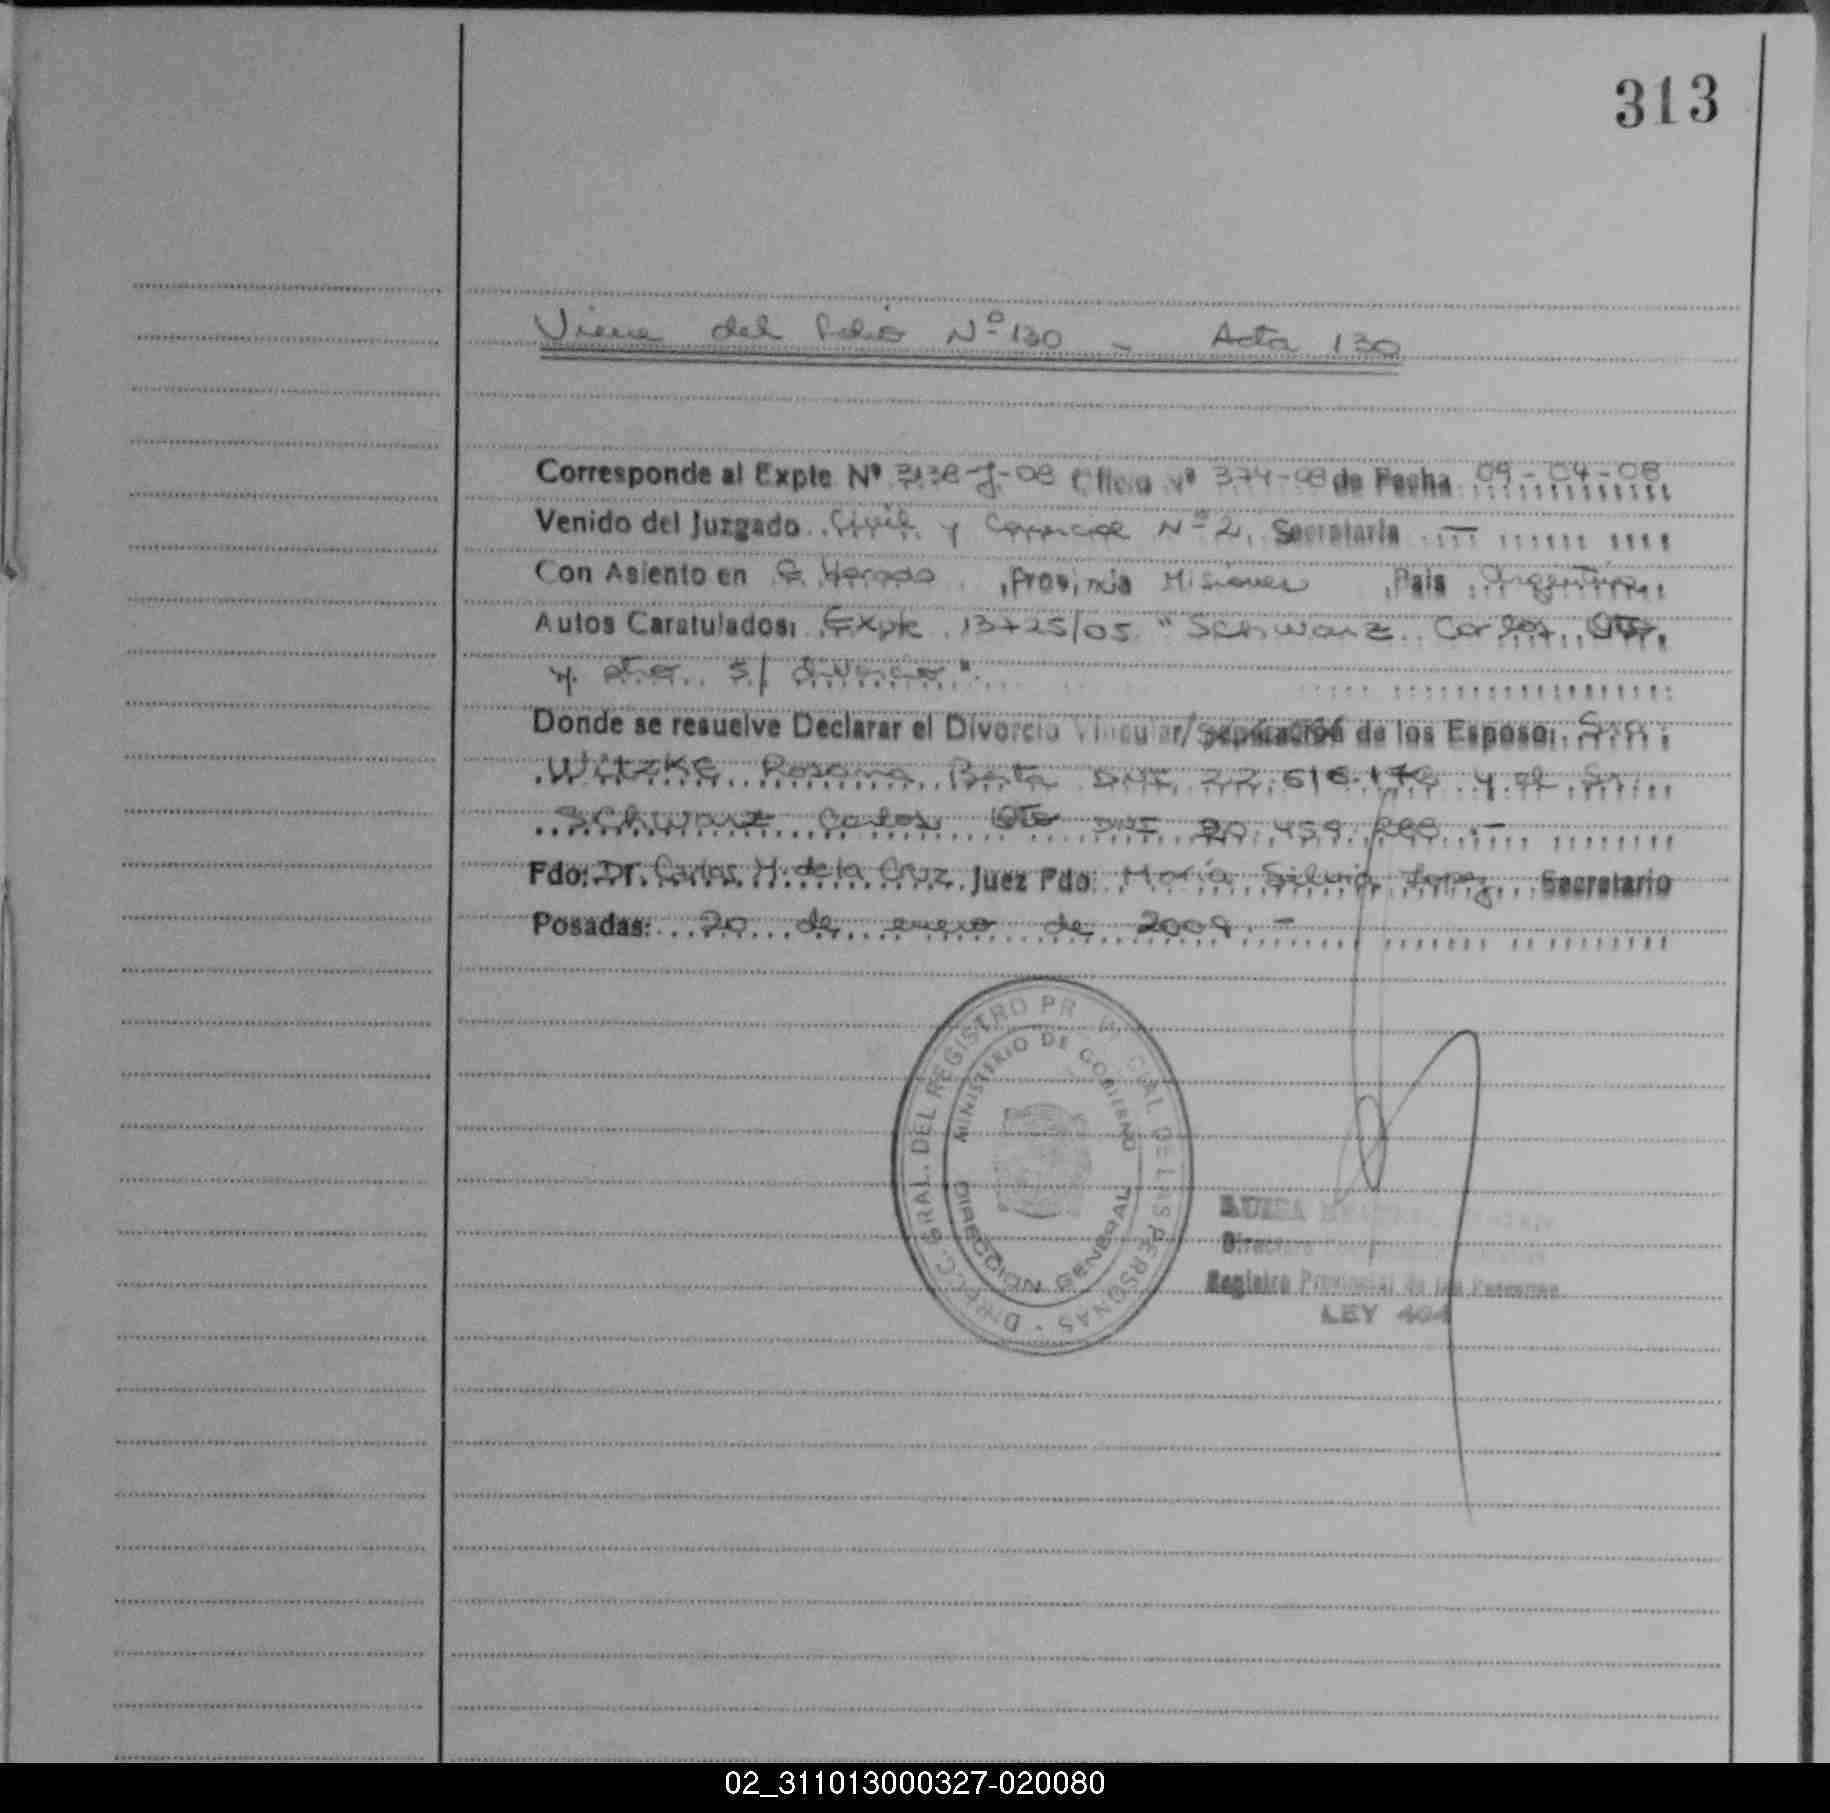 313
Viene del folio Nº 130 - Acta 130
Corresponde al Expte Nº 3138-J-08 Oficio Nº 374-08 de Fecha 09-04-08
Venido del Juzgado Civil y Comercial Nº 2, Secretaria —
Con Asiento en , Provincia Misiones , Pais Argentina
Autos Caratulados: Expte 13725/05 "Schwarz Carlos Otto
y otra s/ divorcio"
Donde se resuelve Declarar el Divorcio Vincular/Separación de los Esposo: Sra.
Witzke Rosana Berta DNI 22.616.176 y el Sr.
Schwarz Carlos Otto DNI 20.459. .-
Fdo: Dr. Carlos M. de la Cruz Juez Fdo: María Silvia Secretario
Posadas: 20 de enero de 2009.-
DIRECC. GRAL. DEL REGISTRO PROVINCIAL DE LAS PERSONAS
MINISTERIO DE GOBIERNO
DIRECCION GENERAL
LUISA
Directora
Registro Provincial de las Personas
LEY 404
02_311013000327-020080